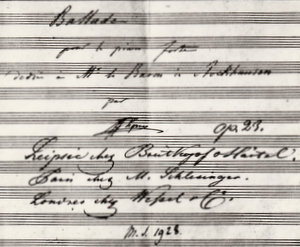 Ballade
pour le piano forte
dediée à Mr le Baron de Stockhausen
par
FChopin op. 23.
Leipsic chez Breitkopf & Härtel.
Paris chez M. Schlesinger.
Londres chez Wessel & C.
M. S. 1928.